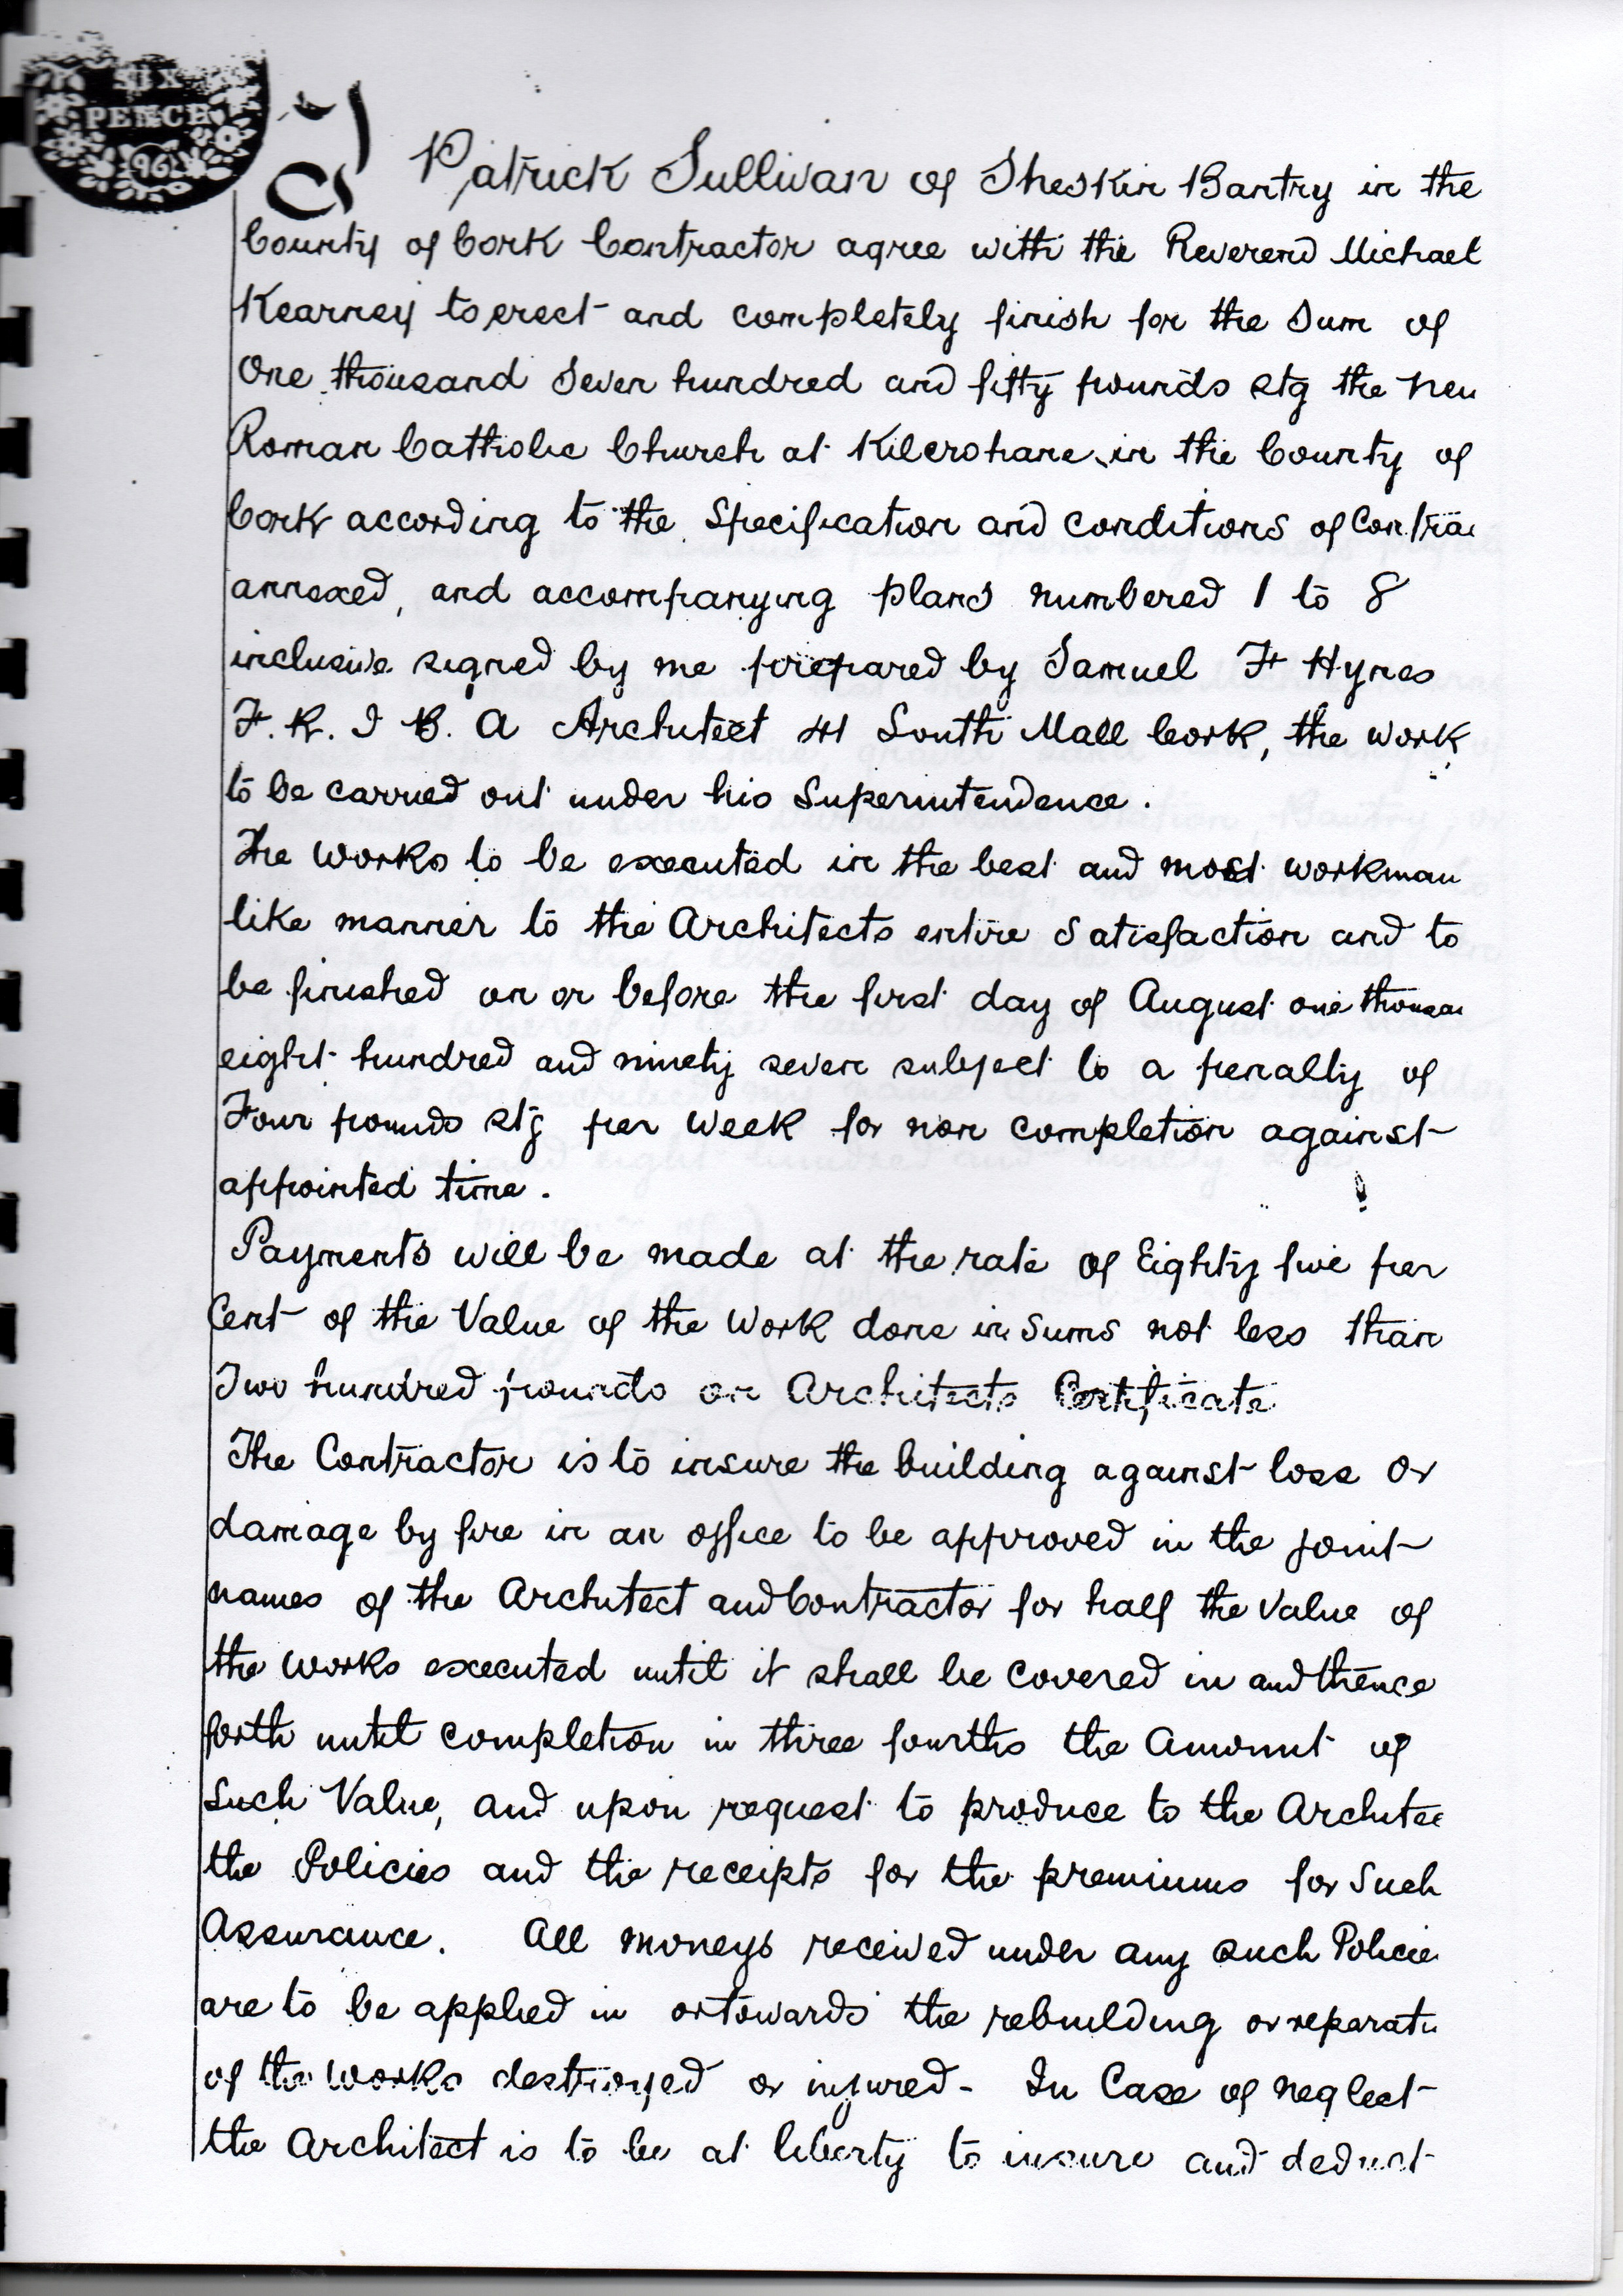 SIX
PENCE
96
I Patrick Sullivan of Sheskin Bantry in the
County of Cork Contractor agree with the Reverend Michael
Kearney to erect and completely finish for the Sum of
One thousand Seven hundred and fifty pounds stg the New
Roman Catholic Church at Kilcrohane in the County of
Cork according to the Specification and conditions of Contrac
annexed, and accompanying plans numbered 1 to 8
inclusive signed by me prepared by Samuel F Hynes
F. R. I B. A Architect 41 South Mall Cork, the work
to be carried out under his Superintendence.
The Works to be executed in the best and most workman
like manner to the Architects entire Satisfaction and to
be finished on or before the first day of August one thousan
eight hundred and ninety seven subject to a penalty of
Four pounds stg per Week for non completion against
appointed time.
Payments will be made at the rate of Eighty five per
Cent of the Value of the Work done in Sums not less than
Two hundred pounds on Architects Certificate
The Contractor is to insure the building against loss or
damage by fire in an office to be approved in the joint
names of the Architect and Contractor for half the Value of
the Works executed until it shall be covered in and thence
forth until completion in three fourths the Amount of
Such Value, and upon request to produce to the Architec
the Policies and the receipts for the premiums for Such
Assurance. All moneys received under any such Policie
are to be applied in or towards the rebuilding or reparati
of the Works destroyed or injured - In Case of neglect
the Architect is to be at liberty to insure and deduct